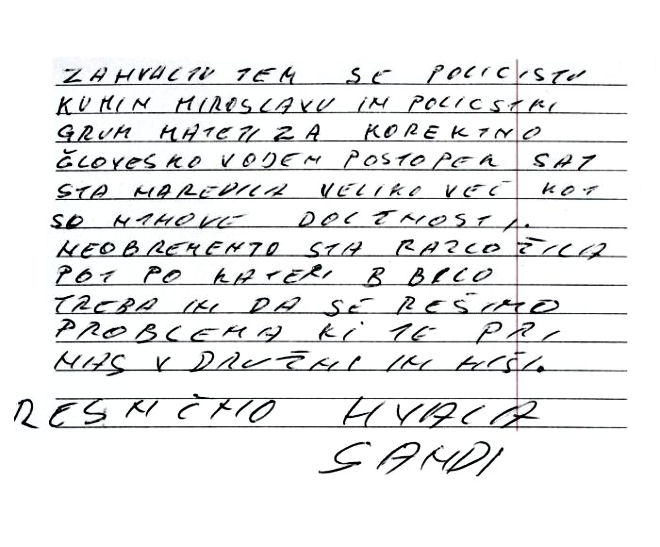 ZAHVALJUJEM SE POLICISTU
KUMIN MIROSLAVU IN POLICSTKI
GRUM MATEJI ZA KOREKTNO
ČLOVEŠKO VODEN POSTOPEK SAJ
STA NAREDILA VELIKO VEČ KOT
SO NJIHOVE DOLŽNOSTI.
NEOBREMENJO STA RAZLOŽILA
POT PO KATERI B BILO
TREBA IN DA SE REŠIMO
PROBLEMA KI JE PRI
NAS V DRUŽINI IN HIŠI.
RESNIČNO HVALA
SANDI